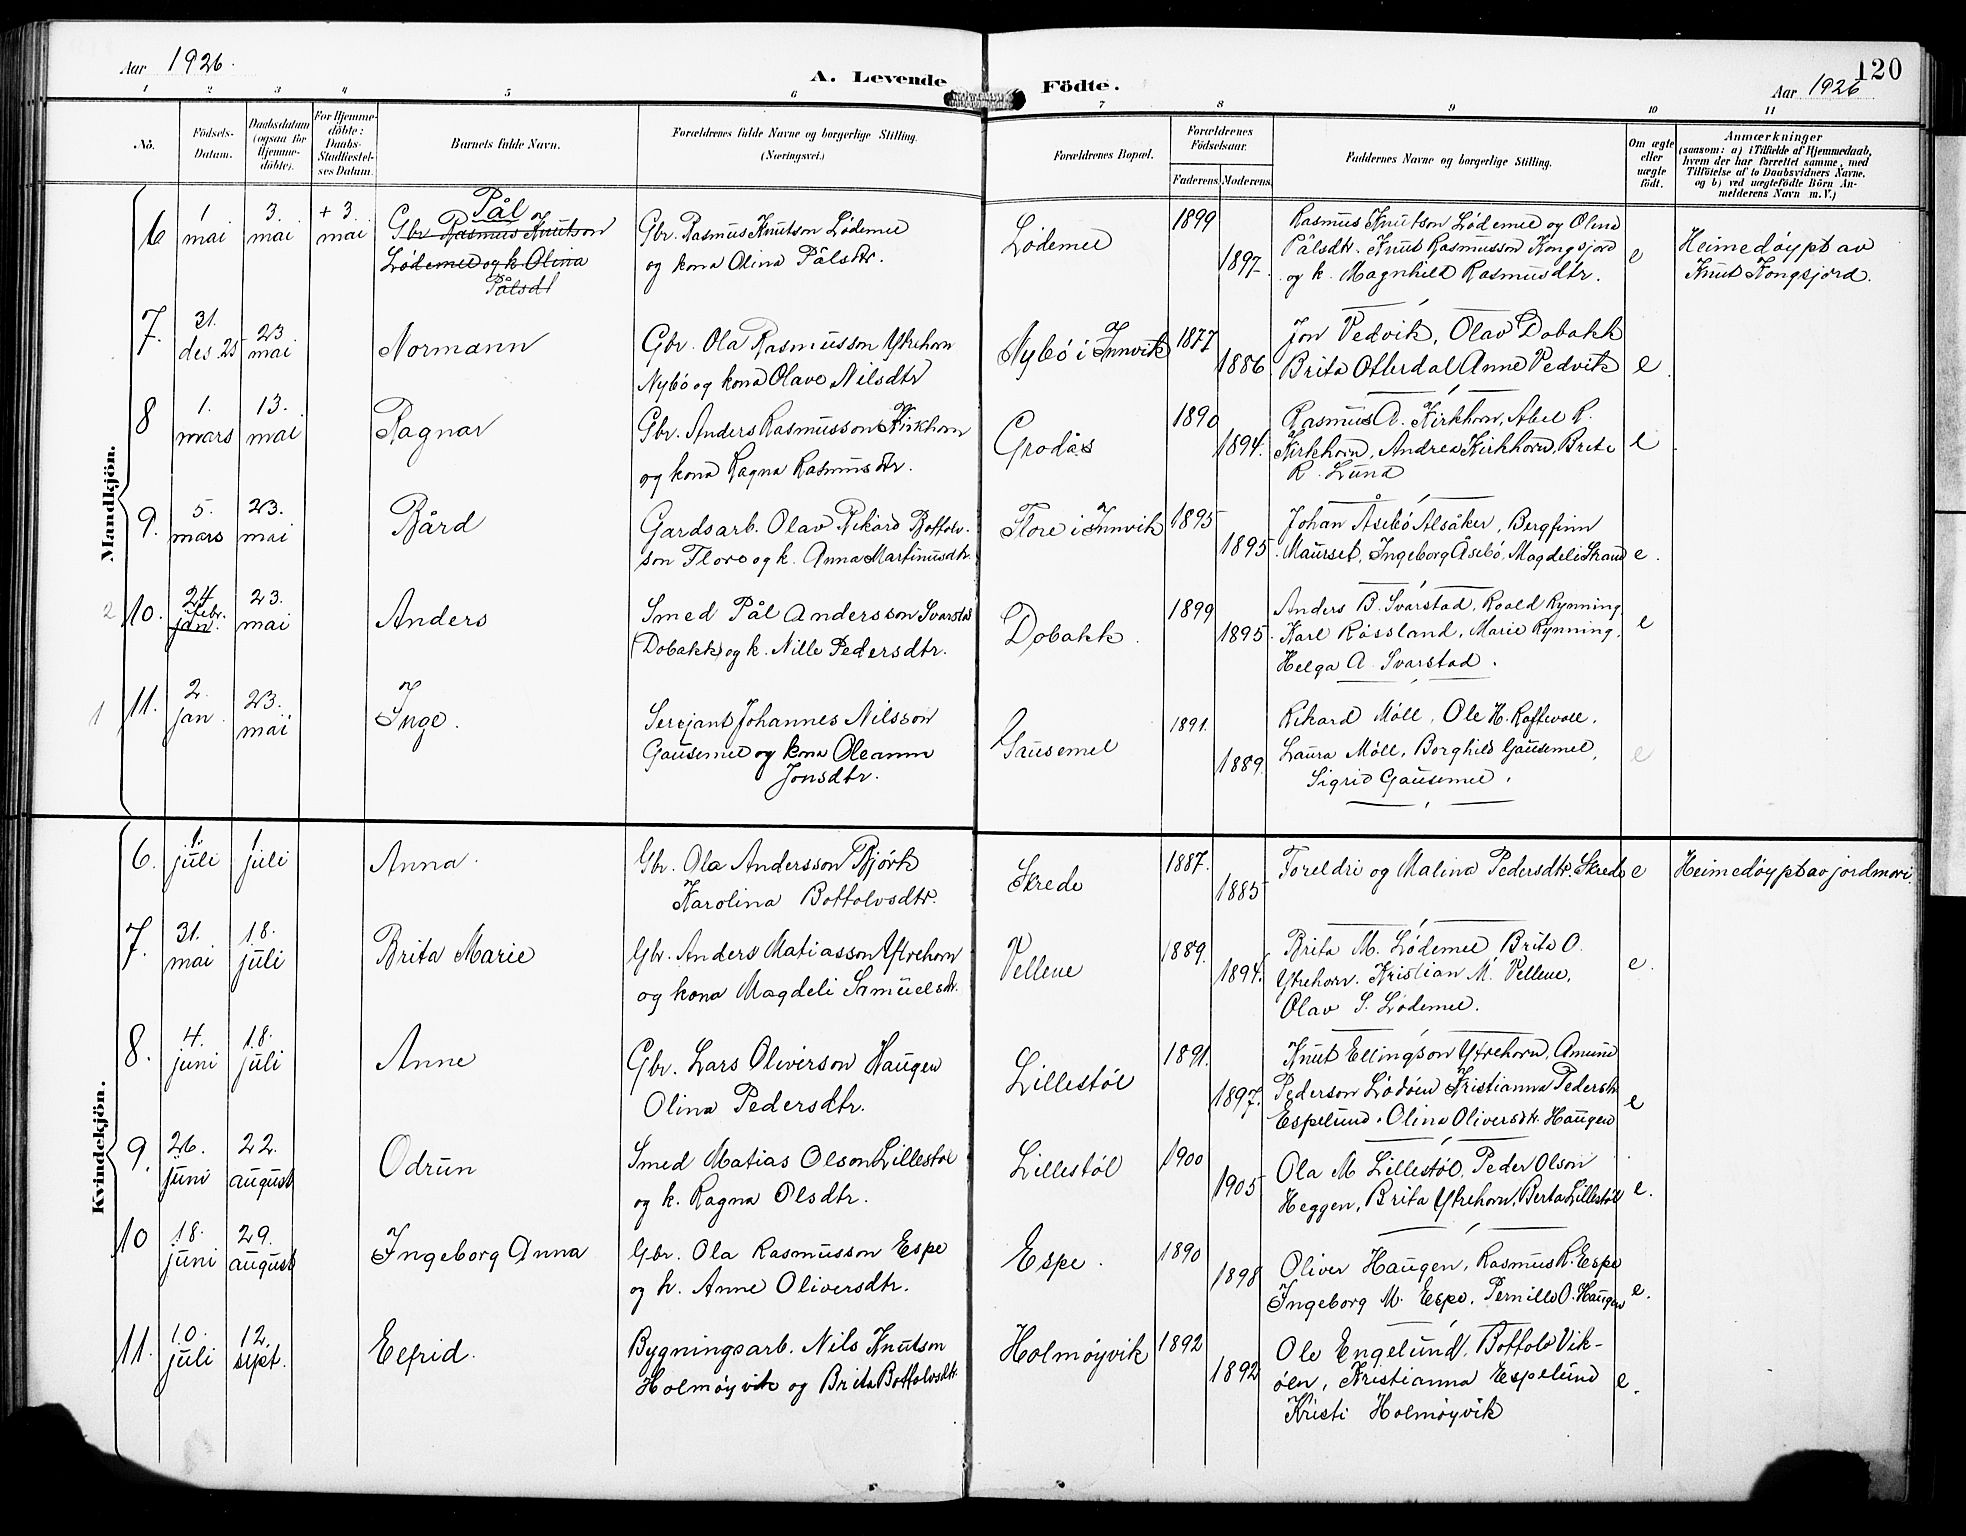 Aar 1926.
A. Levende Födte.
Aar 1926
120
1 2 3 4 5 6 7 8 9 10 11
No.
Födsels-
Datum.
Daabsdatum
(ogsaa for
Hjemme-
döbte).
For Hjemme-
döbte:
Daabs-
Stadfæstel-
ses Datum.
Barnets fulde Navn.
Forældrenes fulde Navne og borgerlige Stilling.
(Næringsvei.)
Forældrenes Bopæl.
Forældrenes
Födselsaar.
Faderens. Moderens.
Faddernes Navne og borgerlige Stilling.
Om ægte
eller
uægte
födt.
Anmærkninger
(saasom: a) i Tilfælde af Hjemmedaab,
hvem der har forrettet samme, med
Tilföielse af to Daabsvidners Navne,
og b) ved uægtefödte Börn An-
melderens Navn m. V.)
Mandkjön.
6
1
mai
3.
mai
+ 3.
mai
Pål
Gbr. Rasmus Knutson
Lødemel og k. Olina
Pålsdt
Gbr. Rasmus Knutson Lødemel
og kona Olina Pålsdtr.
Lødemel
1899
1897.
Rasmus Knutson Lødemel og Olina
Pålsdtr. Knut Rasmusson Kongsjord
og k. Magnhild Rasmusdtr.
e
Heimedøypt av
Knut Kongsjord.
7.
31.
des. 25
23
mai
Normann
Gbr. Ola Rasmusson Ytrehorn
Nybø og kona Olave Nilsdtr
Nybø i Innvik
1877
1886.
Jon Vedvik, Olav Dobakk
Brita Otterdal Anne Vedvik
e
8
1.
mars
13.
mai
Ragnar
Gbr. Anders Rasmusson Kirkhorn
og kona Ragna Rasmusdtr.
Grodås
1890
1894.
Rasmus A. Kirkhorn, Abel R.
Kirkhorn, Andrea Kirkhorn, Brite
R. Lund
e
9.
5.
mars
23.
mai
Bård
Gardsarb. Olav Rikard Bottolv-
son Flore og k. Anna Martinusdtr.
Flore i Innvik
1895
1895.
Johan Åsebø Alsåker, Bergfinn
Maurset, Ingeborg Åsebø, Magdeli Strand
e.
2
10.
24
febr.
jan.
23.
mai
Anders
Smed Pål Andersson Svarstad
(Dobakk) og k. Nille Pedersdtr.
Dobakk.
1899
1895.
Anders B. Svarstad, Roald Rynning
Karl Røssland, Marie Rynning.
Helga A. Svarstad.
e
1
11.
2.
jan.
23.
mai
Inge.
Sersjant Johannes Nilsson
Gausemel og kona Oleanna
Jonsdtr.
Gausemel
1891.
1889.
Rikard Møll, Ole H. Raftevoll,
Laura Møll, Borghild Gausemel,
Sigrid Gausemel.
e
Kvindekjön.
6.
1.
juli
1
juli
Anna.
Gbr. Ola Andersson Bjørk
Karolina Bottolvsdtr.
Skrede
1887.
1885
Foreldri og Malina Pedersdtr. Skrede
e
Heimedøypt av jordmori.
7.
31.
mai
18.
juli
Brita Marie
Gbr. Anders Matiasson Ytrehorn
og kona Magdeli Samuelsdtr.
Vellene
1889.
1894.
Brita M. Lødemel Brita O.
Ytrehorn. Kristian M. Vellene,
Olav S. Lødemel.
e.
8.
4.
juni
18.
juli
Anne
Gbr. Lars Oliverson Haugen
Olina Pedersdtr.
Lillestøl
1891.
1897.
Knut Ellingson Ytrehorn, Amund
Pederson Lødøen Kristianna Pedersdtr
Espelund. Olina Oliversdtr. Haugen
e
9.
26.
juni
22.
august
Odrun
Smed Matias Olson Lillestøl
og k. Ragna Olsdtr.
Lillestøl
1900
1905
Ola M Lillestøl, Peder Olson
Heggen, Brita Ytrehorn, Berta Lillestøl
e.
10
18.
juni
29.
august
Ingeborg Anna
Gbr. Ola Rasmusson Espe
og k. Anne Oliversdtr.
Espe.
1890
1898
Oliver Haugen, Rasmus R. Espe
Ingeborg M. Espe. Pernille O. Haugen
e.
11.
10.
juli
12.
sept.
Elfrid.
Bygningsarb. Nils Knutson
Holmøyvik og Brita Bottolvsdtr.
Holmøyvik
1892
1892
Ole Engelund, Bottolv Vik-
øen, Kristianna Espelund
Kristi Holmøyvik
e.